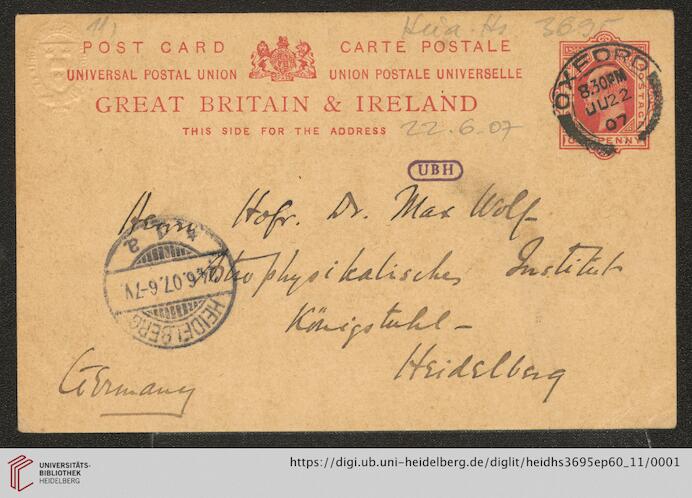 11)
Heid. Hs. 3695
POST CARD
CARTE POSTALE
UNIVERSAL POSTAL UNION
UNION POSTALE UNIVERSELLE
GREAT BRITAIN & IRELAND
THIS SIDE FOR THE ADDRESS
22.6.07
POSTAGE
ONE PENNY
OXFORD
8.30PM
JU 22
07
UBH
Herrn Hofr. Dr. Max Wolf
Astrophysikalisches Institut
Königstuhl –
Heidelberg
Germany
24.6.07.6-7V.
HEIDELBERG
UNIVERSITÄTS-
BIBLIOTHEK
HEIDELBERG
https://digi.ub.uni-heidelberg.de/diglit/heidhs3695ep60_11/0001